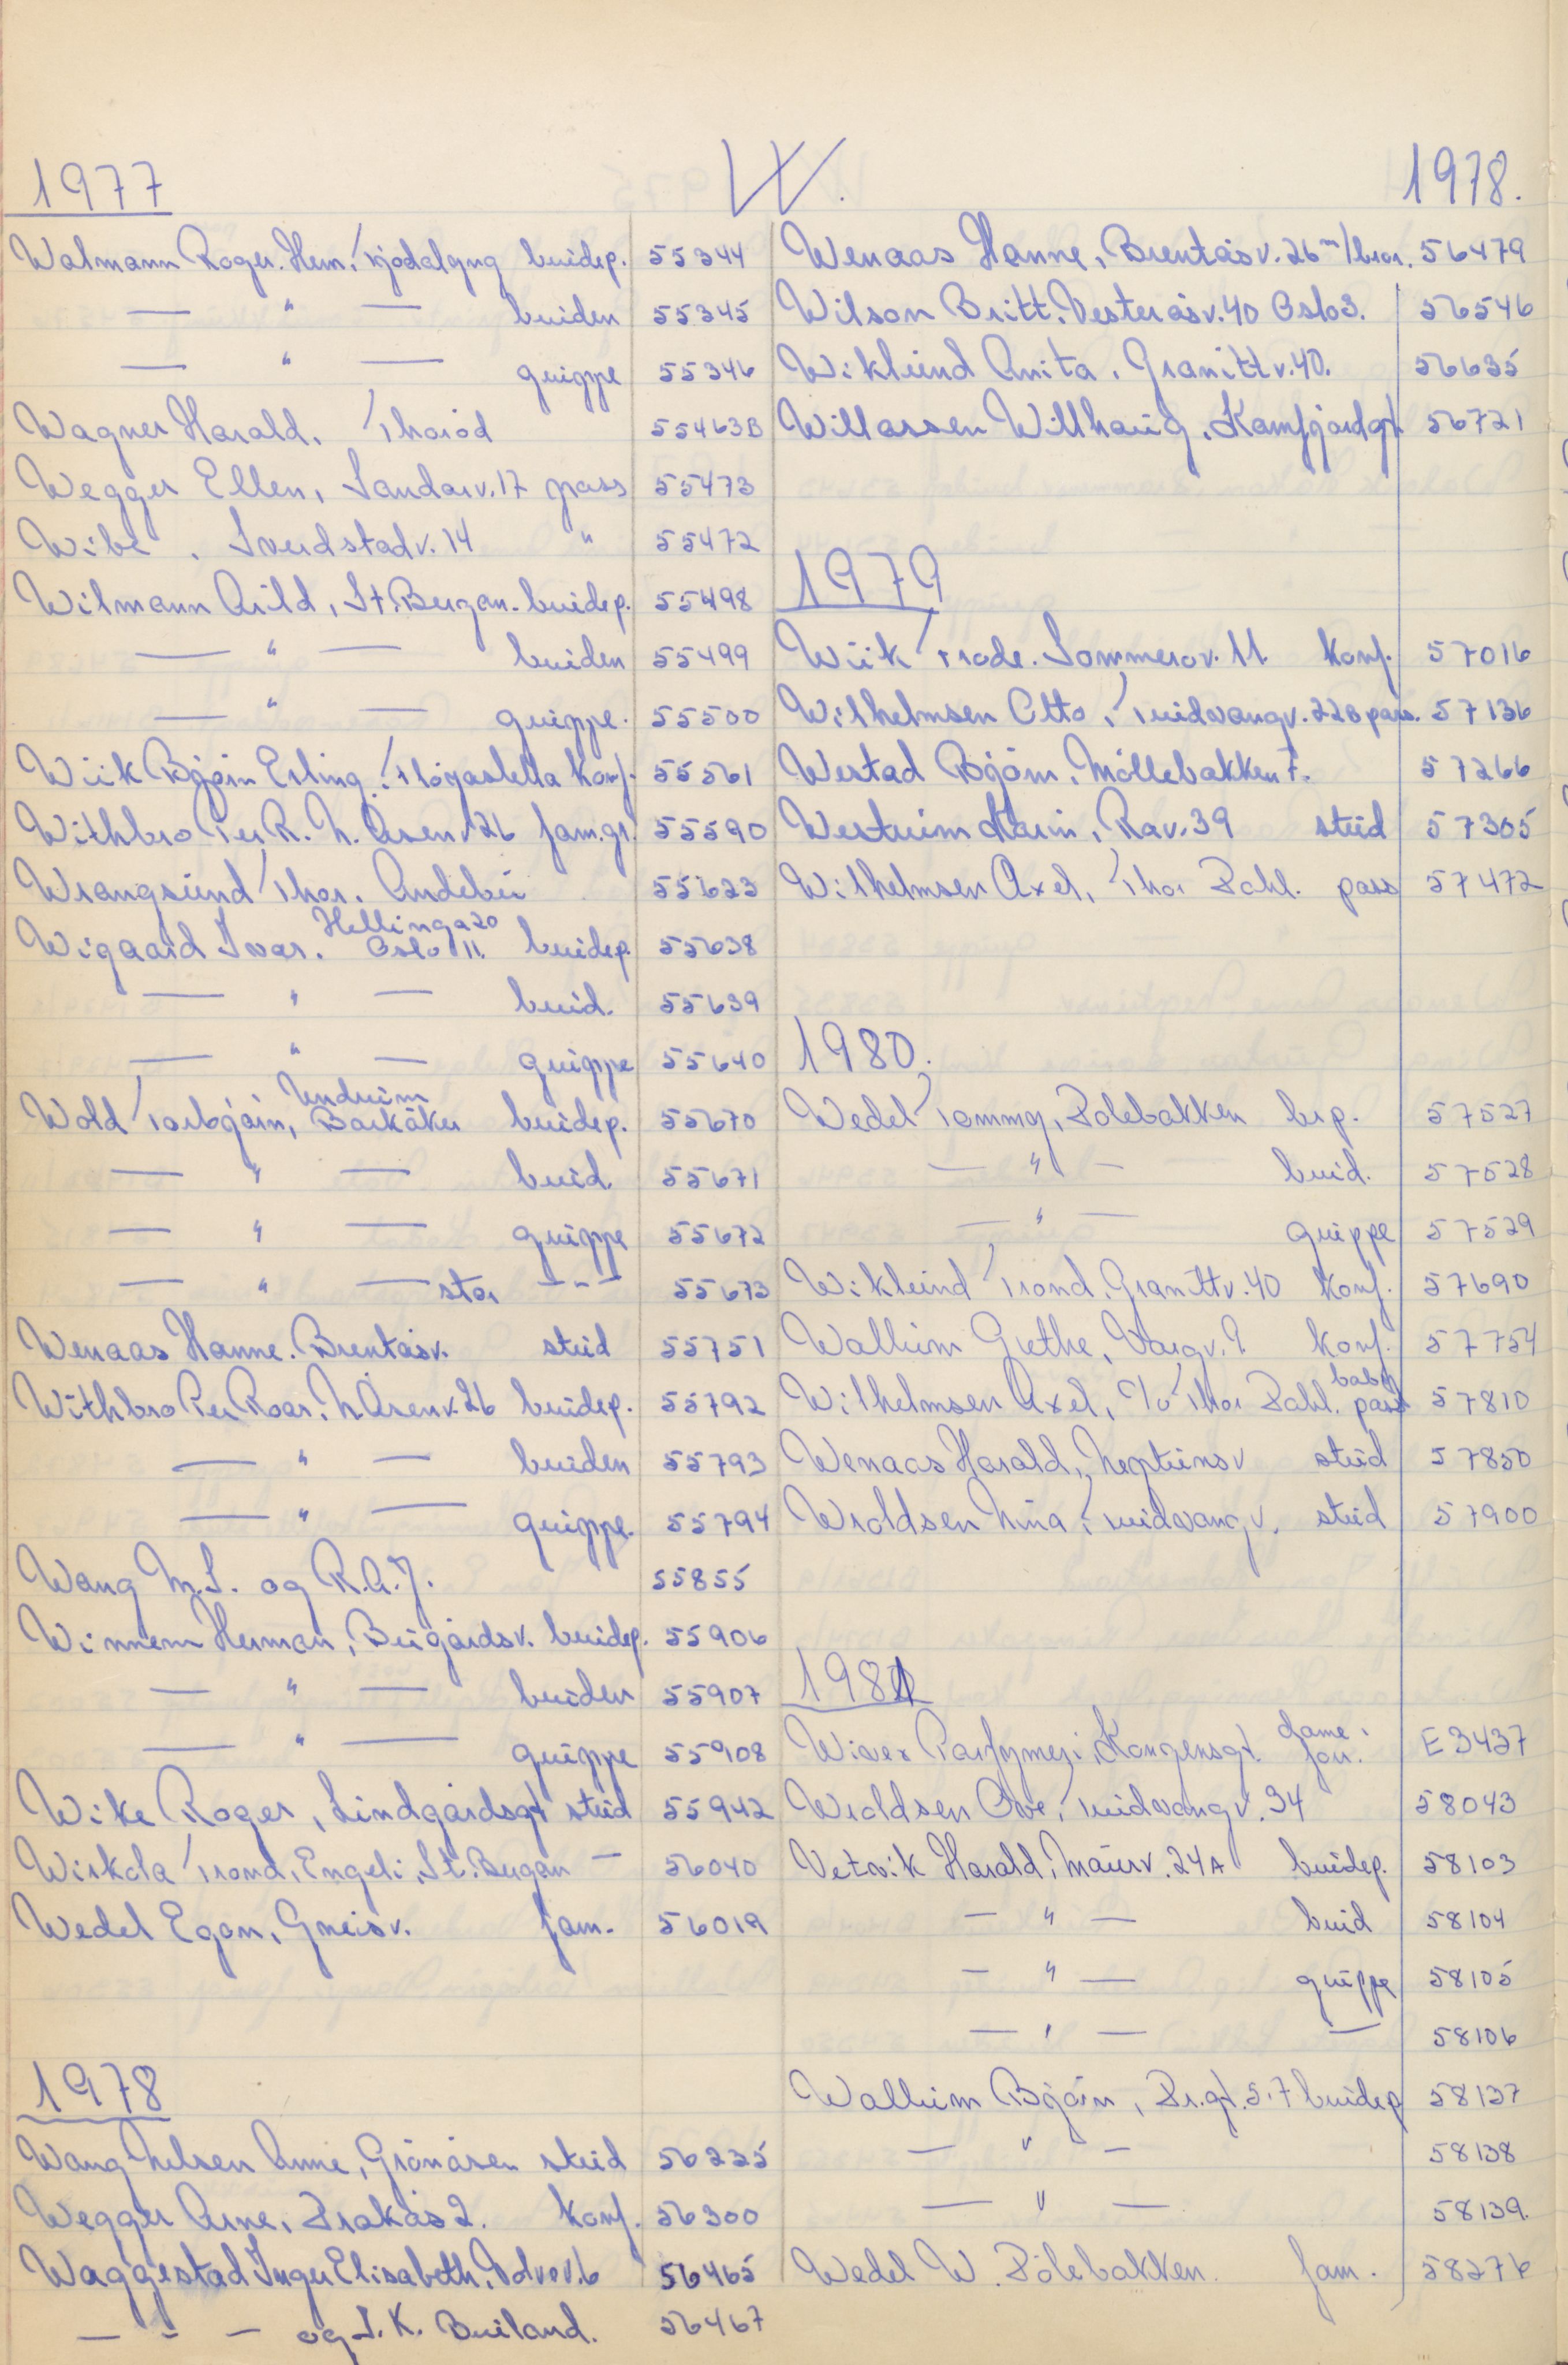 W.
1977
Walmann Roger. Hem. Fjodalyng bruidep. 55344
— " — bruden 55345
— " — gruppe 55346
Wagner Harald. Thorød 55463B
Wegger Ellen, Sandarv. 17 pass 55473
Wibe . Sverdstadv. 14 " 55472
Wilmann Arild, St. Bergan. brudep. 55498
— " — bruden 55499
— " — gruppe. 55500
Wiik Bjørn Erling. Fløyasletta Konf. 55561
Withbro Per R. N. Åsenv. 26 fam.gr. 55590
Wrangsund Thor. Andebu 55623
Wigaard Ivar. Hellinga 20 Oslo 11. brudep. 55638
— " — brud. 55639
— " — gruppe 55640
Wold Torbjørn, Undrum Barkåker brudep. 55670
— " — brud. 55671
— " — gruppe 55672
— " — stor — " — 55673
Wenaas Hanne. Brentåsv. stud 55751
Withbro Per Roar. N. Åsenv. 26 brudep. 55792
— " — bruden 55793
— " — gruppe. 55794
Wang M.S. og R.A.J. 55855
Winnem Herman, Bugårdsv. brudep. 55906
— " — bruden 55907
— " — gruppe 55908
Wike Roger, Lindgårdsgt stud 55942
Wirkola Trond, Engeli, St. Bergan — 56040
Wedel Egon, Gneisv. fam. 56019
1978
Wang Nilsen Anne, Grønåsen stud 56235
Wegger Arne, Drakås 2. konf. 56300
Waggestad Inger Elisabeth. 6 56465
— " — og I. K. Builand. 56467
1978.
Wenaas Hanne, Brentåsv. 26 m/bror. 56479
Wilson Britt. Vesteråsv. 40 Oslo 3. 56546
Wiklund Anita. Granittv. 40. 56635
Willassen Willhaug. Kamfjordgt 56721
1979
Wiik Frode. Sommerov. 11. Konf. 57016
Wilhelmsen Otto, Tuidvangv. 22B pass. 57136
Westad Bjørn. Møllebakken 7. 57266
Westrum Karin, Rav. 39 stud 57305
Wilhelmsen Axel, Thor Dahl. pass 57472
1980.
Wedel Tommy, Dølebakken br.p. 57527
— " — brud. 57528
— " — gruppe 57529
Wiklund Trond. Granittv. 40 konf. 57690
Wallum Grethe, Vargv. 2 konf. 57754
Wilhelmsen Axel, c/o Thor Dahl. baby pass 57810
Wenaas Harald, Neptunsv stud 57850
Wroldsen Nina. Tuidvangv. stud 57900
1981
Wivex Parfymeri. Kongensgt. dame. forr. E3437
Wroldsen Ove, Tuidvangv. 34 58043
Vetvik Harald, Maurv. 24A brudep. 58103
— " — brud 58104
— " — gruppe 58105
— " — — 58106
Wallum Bjørn, Dr.gt. 5.7 brudep 58137
— " — 58138
— " — 58139.
Wedel W. Dølebakken. fam. 58276